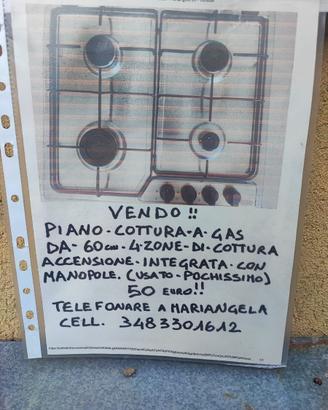 VENDO !!
PIANO-COTTURA-A-GAS
DA-60cm-4-ZONE-DI-COTTURA
ACCENSIONE-INTEGRATA-CON
MANOPOLE. (USATO-POCHISSIMO)
50 EURO!!
TELEFONARE A MARIANGELA
CELL. 3483301612